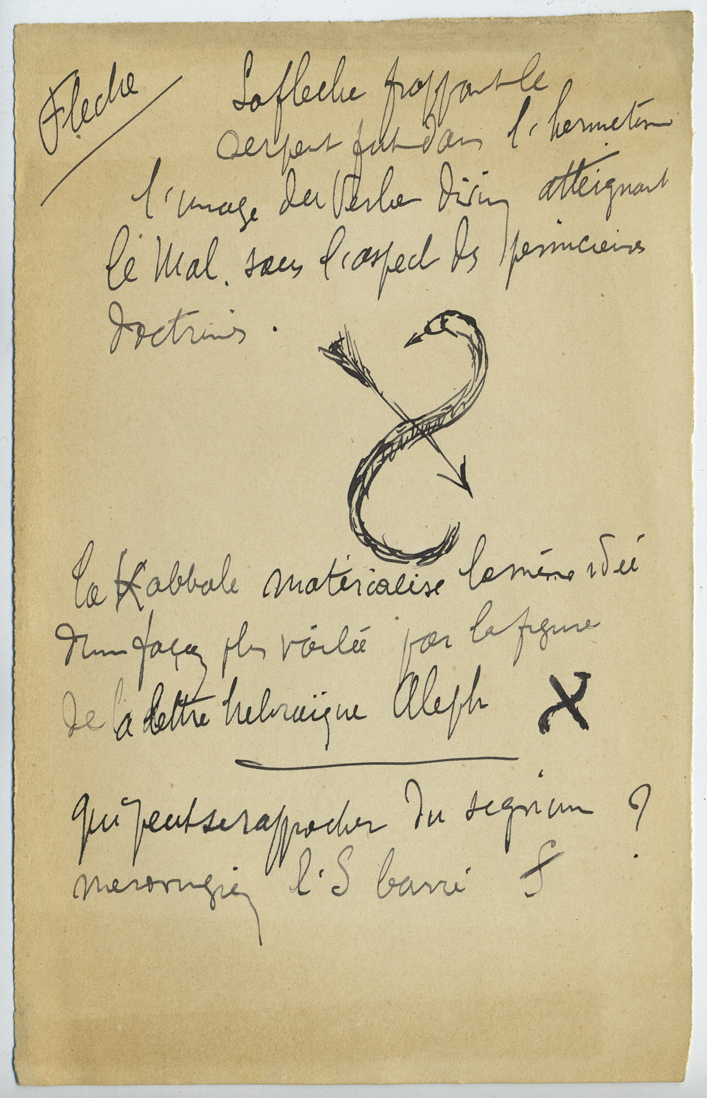 Flèche
La flèche frappant le
serpent fut dans l'hermétisme
l'image du Verbe divin atteignant
le Mal. sous l'aspect des pernicieuses
doctrines.
La Kabbale matérialise la même idée
d'une façon plus voilée par la figure
de la lettre hebraïque Aleph א
qui peut se rapprocher du signum ?
merovingien l'S barré